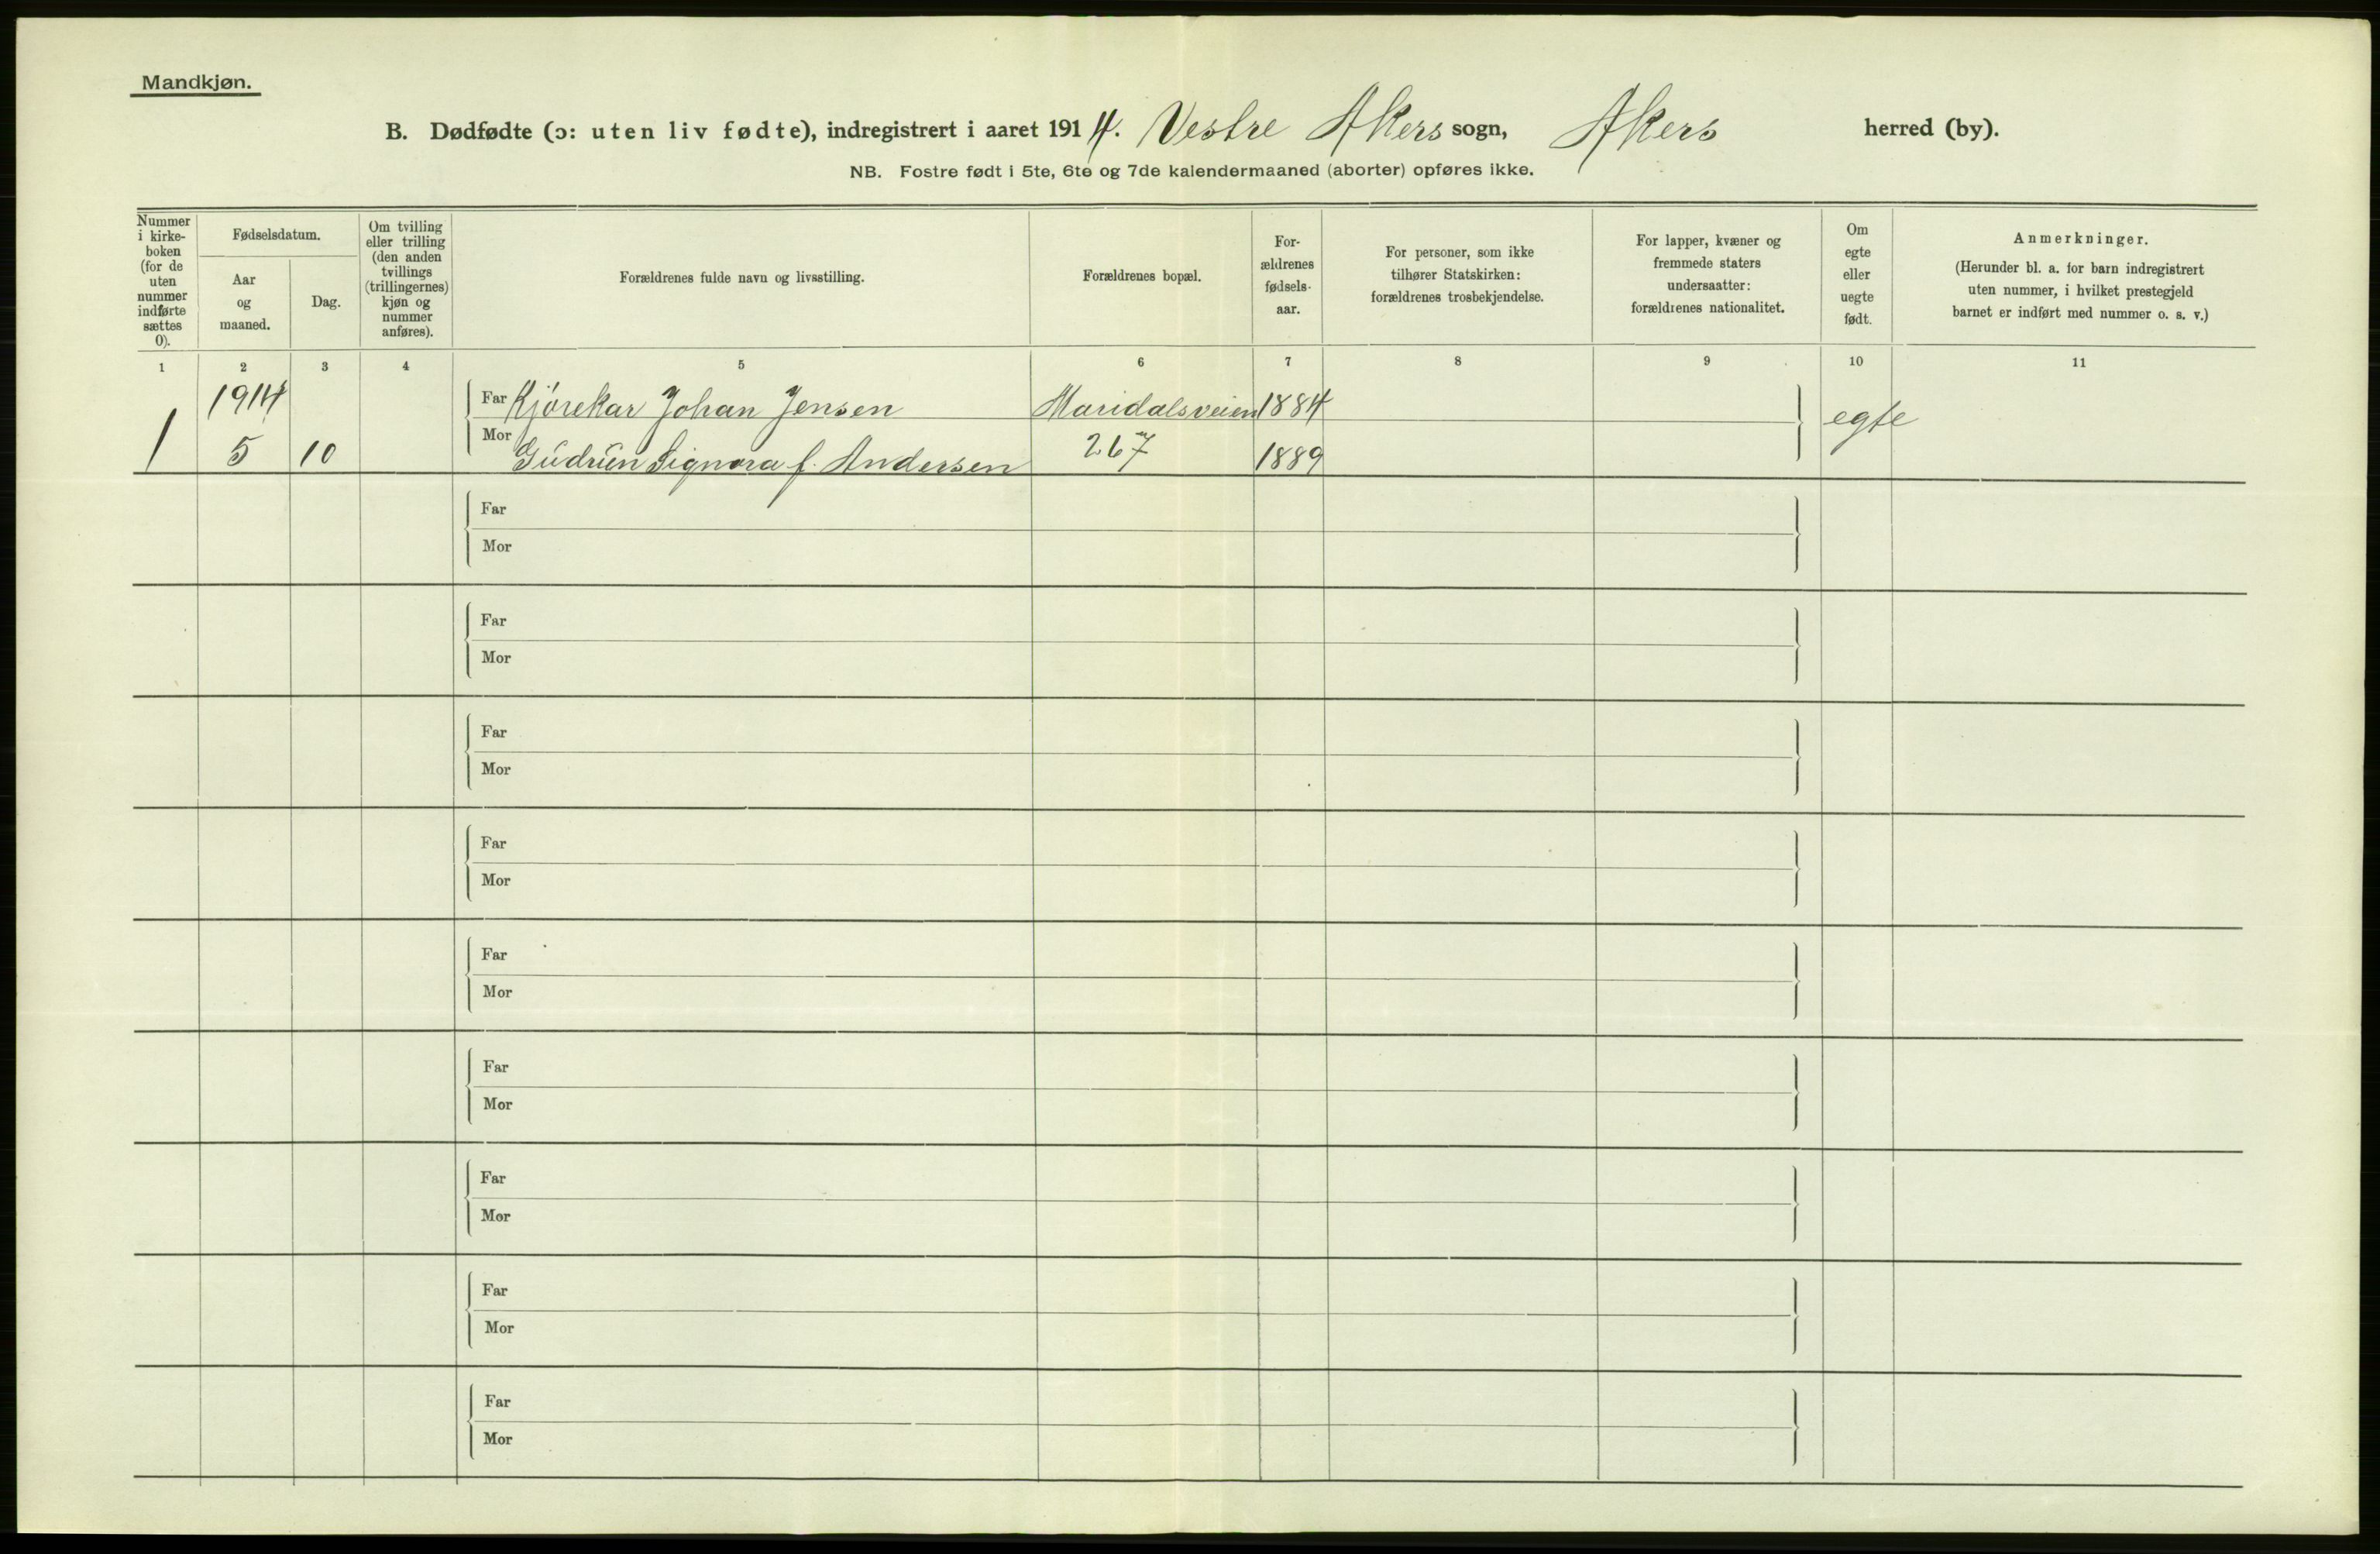 Mandkjøn.
B. Dødfødte (ɔ: uten liv fødte), indregistrert i aaret 1914. Vestre Akers sogn, Akers herred (by).
NB. Fostre født i 5te, 6te og 7de kalendermaaned (aborter) opføres ikke.
Nummer
i kirke-
boken
(for de
uten
nummer
indførte
sættes
0).
Fødselsdatum.
Aar
og
maaned.
Dag.
Om tvilling
eller trilling
(den anden
tvillings
(trillingernes)
kjøn og
nummer
anføres).
Forældrenes fulde navn og livsstilling.
Forældrenes bopæl.
For-
ældrenes
fødsels-
aar.
For personer, som ikke
tilhører Statskirken:
forældrenes trosbekjendelse.
For lapper, kvæner og
fremmede staters
undersaatter:
forældrenes nationalitet.
Om
egte
eller
uegte
født.
Anmerkninger.
(Herunder bl. a. for barn indregistrert
uten nummer, i hvilket prestegjeld
barnet er indført med nummer o. s. v.)
1 2 3 4 5 6 7 8 9 10 11
1914 Far Kjørekar Johan Jensen Maridalsveien 1884 egte
1 5 10 Mor Gudrun Signora f. Andersen 267 1889
Far
Mor
Far
Mor
Far
Mor
Far
Mor
Far
Mor
Far
Mor
Far
Mor
Far
Mor
Far
Mor